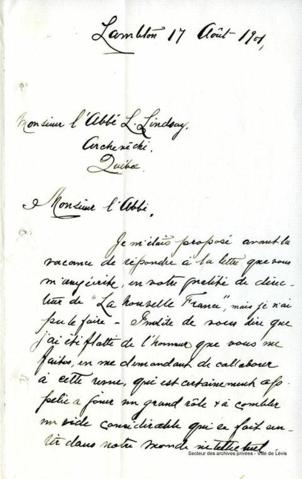 Lambton 17 Août 1901,
Monsieur l'Abbé L. Lindsay,
Archevêché,
Québec.
Monsieur l'Abbé,
Je m'étais proposé avant la
vacance de répondre à la lettre que vous
m'avez écrite, en votre qualité de direc-
teur de "La Nouvelle France", mais je n'ai
pu le faire - Inutile de vous dire que
j'ai été flatté de l'honneur que vous me
faites, en me demandant de collaborer
à cette revue, qui est certainement ap-
pelée à jouer un grand rôle & à combler
un vide considérable qui se fait sen-
tir dans notre monde intellectuel
Secteur des archives privées - Ville de Lévis